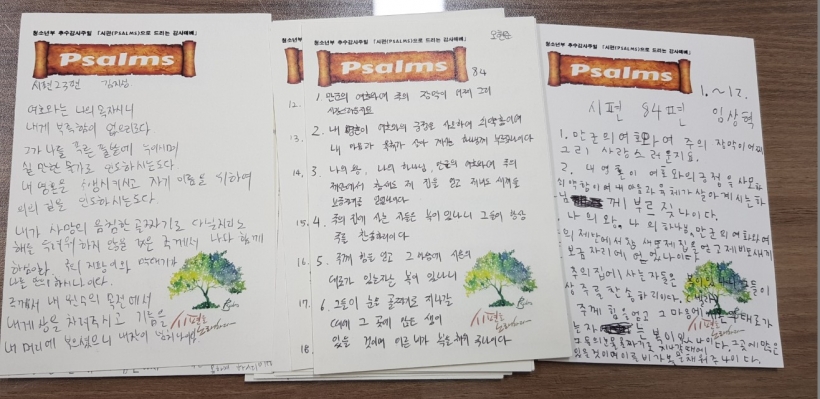 청소년부 추수감사주일 「시편(PSALMS)으로 드리는 감사예배」
Psalms
시편 23편 김지성
여호와는 나의 목자시니
내게 부족함이 없으리로다
그가 나를 푸른 풀밭에 누이시며
쉴 만한 물가로 인도하시는도다
내 영혼을 소생시키시고 자기 이름을 위하여
의의 길로 인도하시는도다
내가 사망의 음침한 골짜기로 다닐지라도
해를 두려워하지 않을 것은 주께서 나와 함께
하심이라 주의 지팡이와 막대기가
나를 안위하시나이다
주께서 내 원수의 목전에서
내게 상을 차려주시고 기름을
내 머리에 부으셨으니 내 잔이 넘치나이다
시편을 노래하다
12.
13.
14.
15.
16.
17.
18.
청소년부 추수감사주일 「시편(PSALMS)으로 드리는 감사예배」
Psalms
84
1. 만군의 여호와여 주의 장막이 어찌 그리
사랑스러운지요
2. 내 영혼이 여호와의 궁정을 사모하여 쇠약함이여
내 마음과 육체가 살아 계시는 하나님께 부르짖나이다
3. 나의 왕, 나의 하나님, 만군의 여호와여 주의
제단에서 참새도 제 집을 얻고 제비도 새끼 둘
보금자리를 얻었나이다
4. 주의 집에 사는 자들은 복이 있나니 그들이 항상
주를 찬송하리이다
5. 주께 힘을 얻고 그 마음에 시온의
대로가 있는 자는 복이 있나니
6. 그들이 눈물 골짜기로 지나갈
때에 그 곳에 많은 샘이
있을 것이며 이른 비가 복을 채워 주나이다
시편을 노래하다
청소년부 추수감사주일 「시편(PSALMS)으로 드리는 감사예배」
Psalms
1.~12.
시편 84편 임상혁
1. 만군의 여호와여 주의 장막이 어찌
그리 사랑스러운지요.
2. 내 영혼이 여호와의 궁정을 사모하
쇠약함이여 내 마음과 육체가 살아계시는 하
님께 부르짖나이다.
나의 왕, 나의 하나님, 만군의 여호와여
의 제단에서 참새도 제 집을 얻고 제비도 새끼
보금자리를 얻었나이다.
주의 집에 사는 자들은 복이 있나니 그들이
상 주를 찬송하리이다.
주께 힘을 얻고 그 마음에 대로가
는 자는 복이 있나이다.
눈물 골짜기로 지나갈 때에 그곳에 많은
있을 것이며 이른 비가 복을 채워 주나이다.